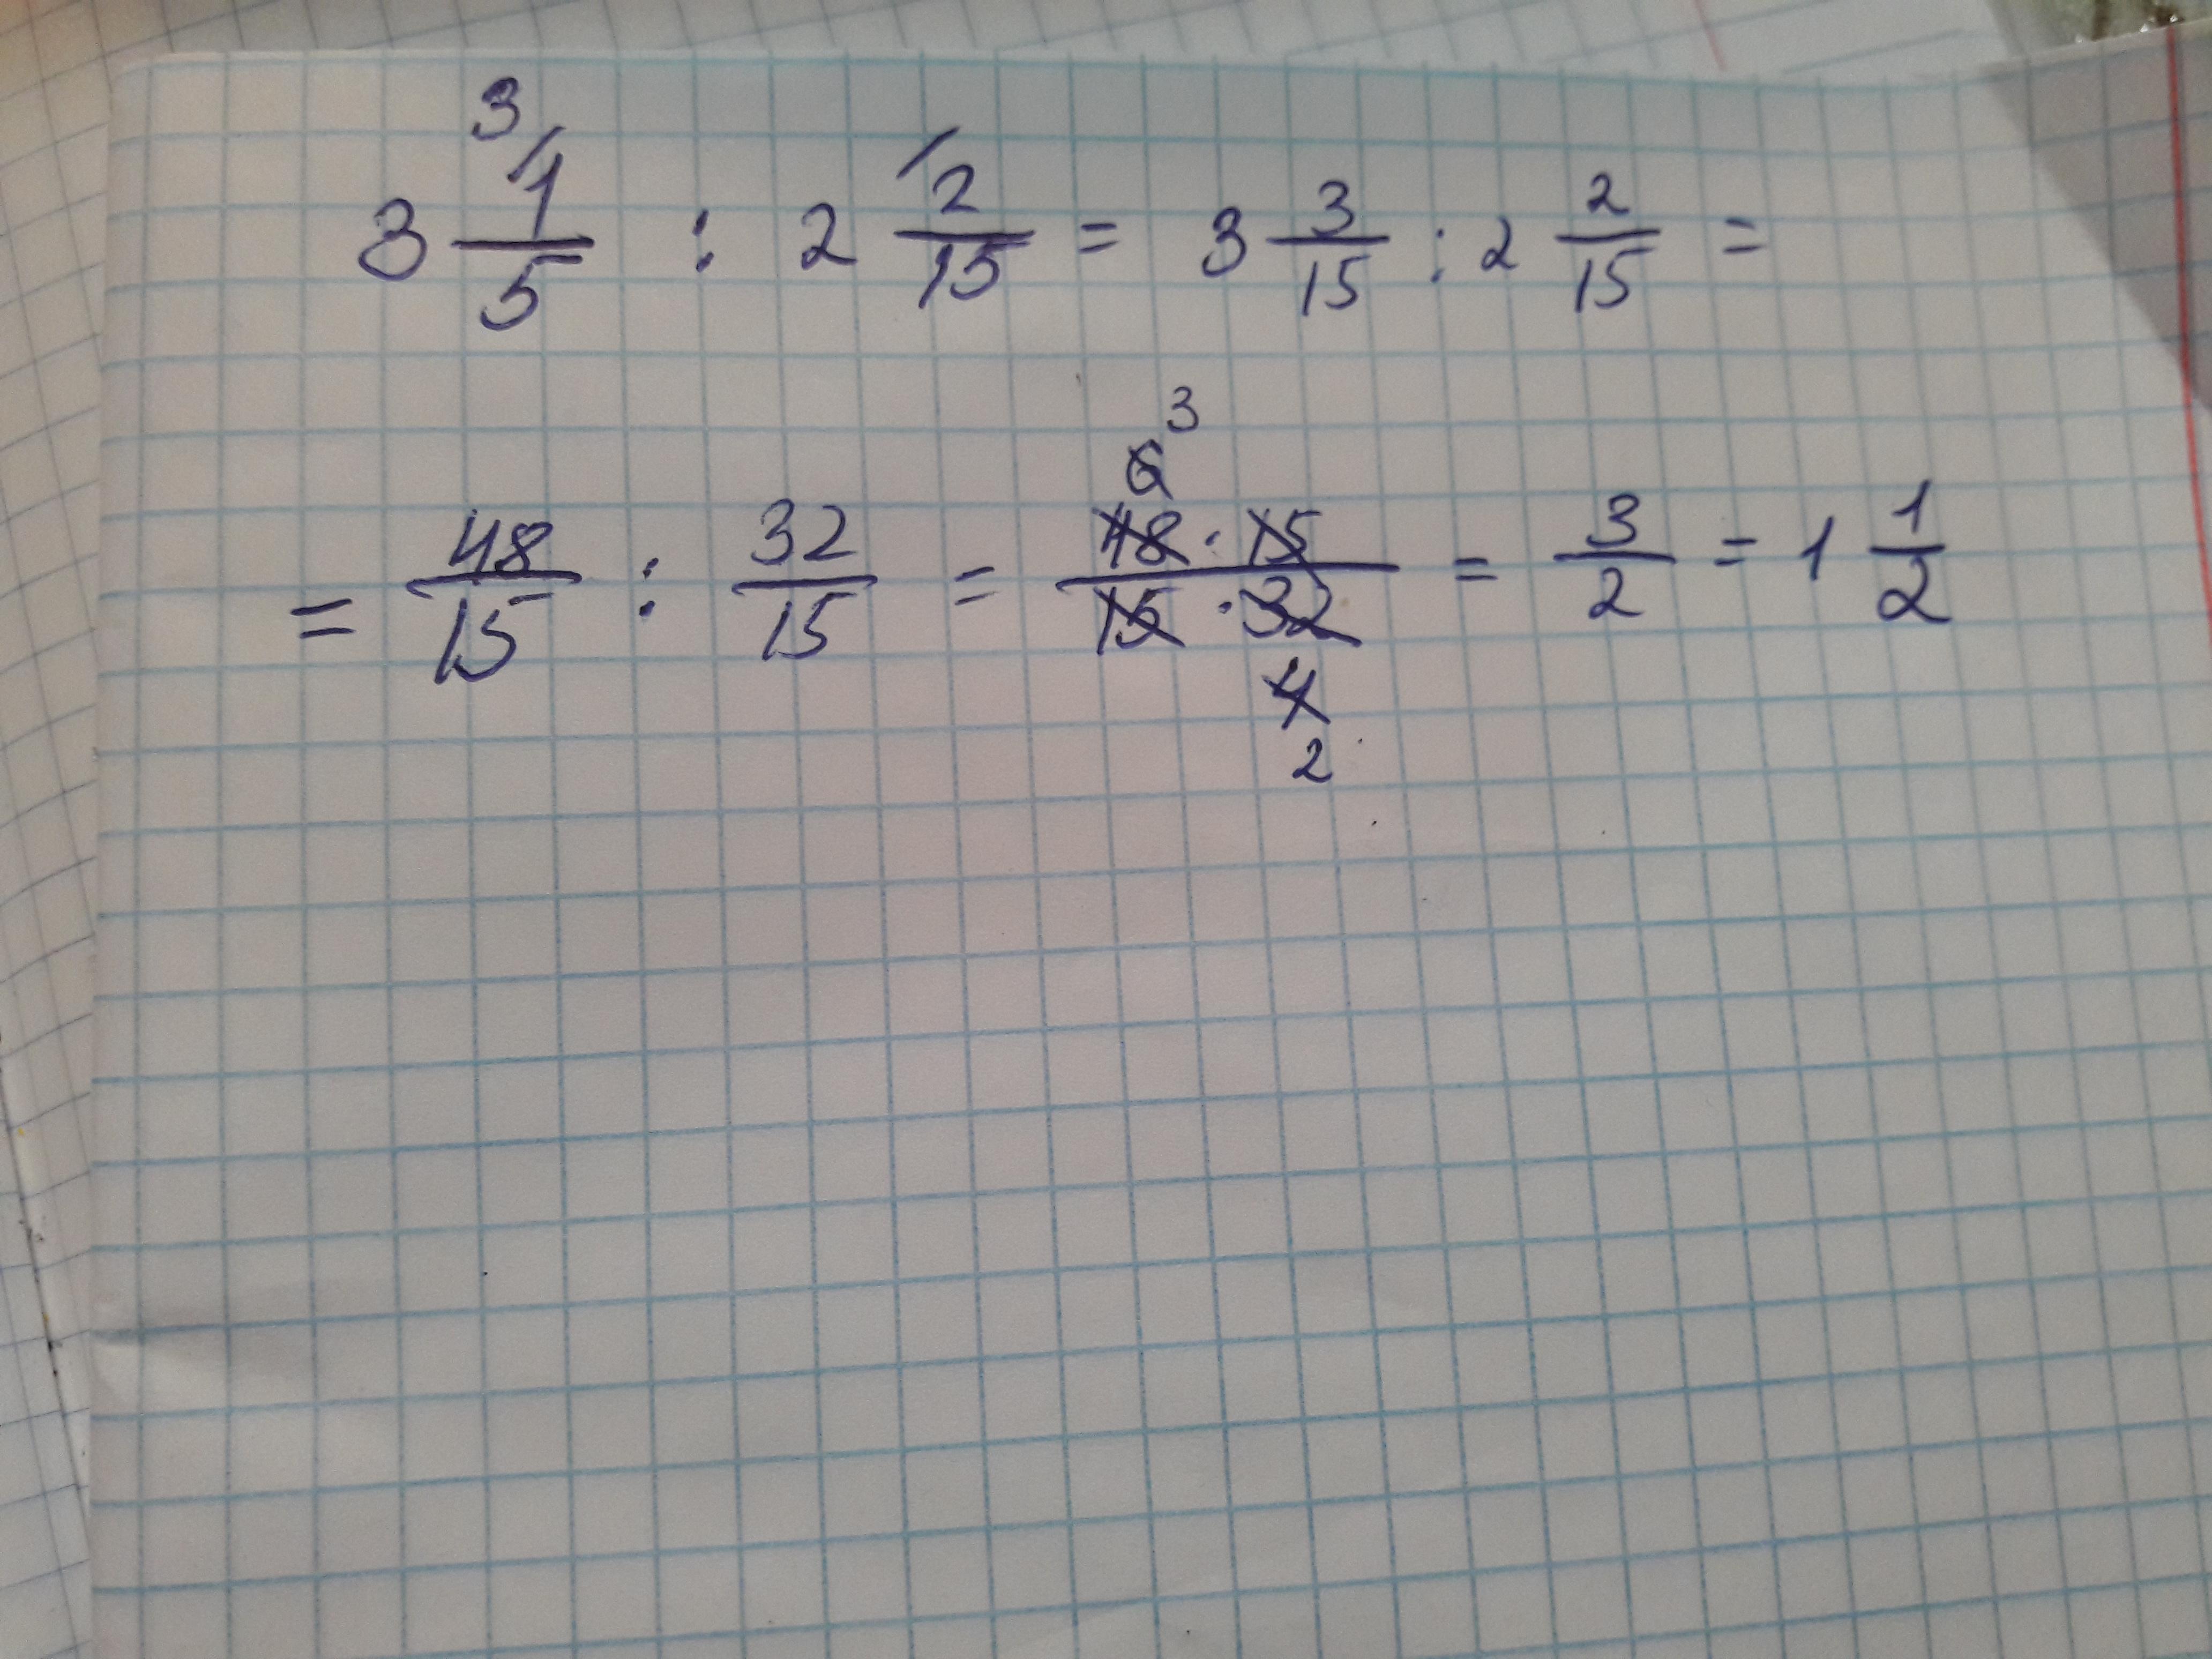 3 3/ 1/5 : 2 / 2/15 = 3 3/15 : 2 2/15 =
= 48/15 : 32/15 = 6 3 48 · 15 / 15 · 32 4 2 = 3/2 = 1 1/2